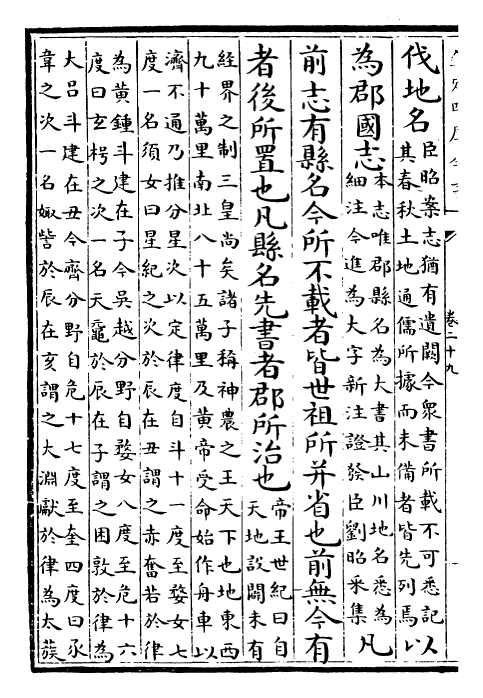 伐地名臣昭案志猶有遺闕今衆書所載不可悉記以其春秋土地通儒所據而未備者皆先列焉以
為郡國志本志唯郡縣名為大書其山川地名悉為細注今進為大字新注證發臣劉昭采集凡
前志有縣名今所不載者皆世祖所并省也前無今有
者後所置也凡縣名先書者郡所治也帝王世紀曰自天地設闢未有
經界之制三皇尚矣諸子稱神農之王天下也地東西
九十萬里南北八十五萬里及黄帝受命始作舟車以
濟不通乃推分星次以定律度自斗十一度至婺女七
度一名須女曰星紀之次於辰在丑謂之赤奮若於律
為黄鍾斗建在子今吳越分野自婺女八度至危十六
度曰玄枵之次一名天黿於辰在子謂之困敦於律為
大吕斗建在丑今齊分野自危十七度至奎四度曰豕
韋之次一名娵訾於辰在亥謂之大淵獻於律為太蔟
卷二十九